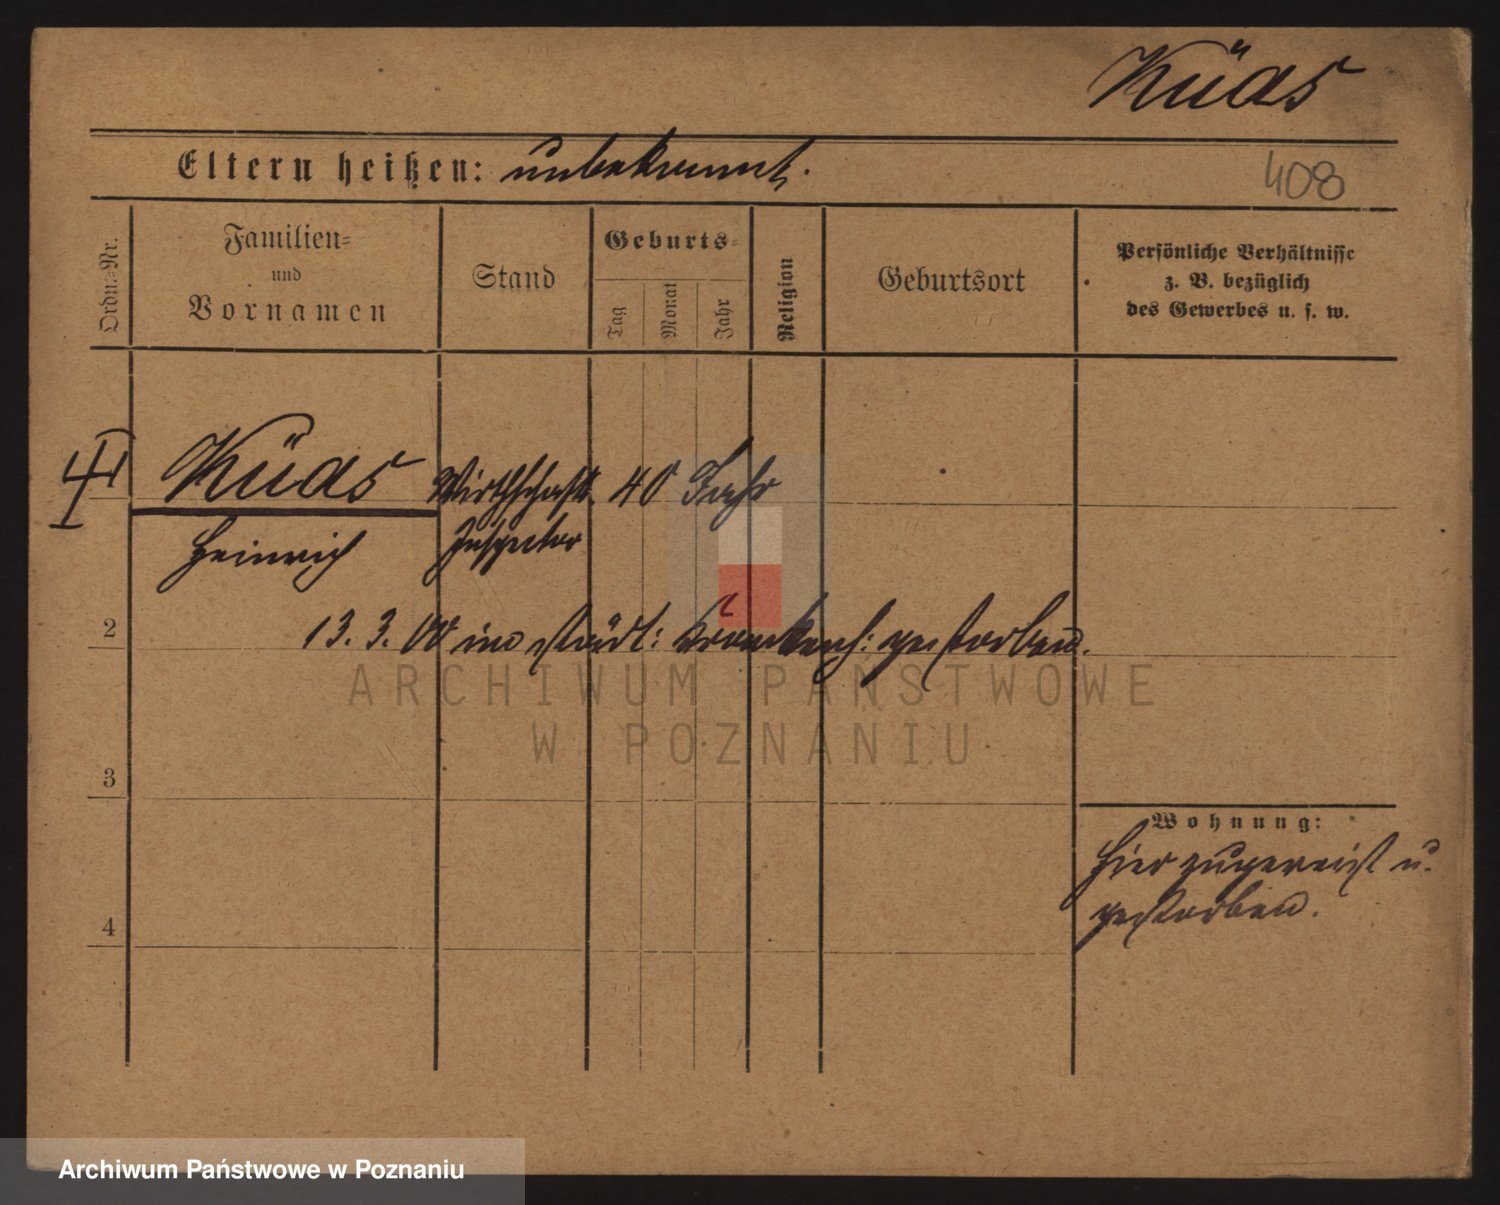 Küas
Eltern heißen: unbekannt.
408
Ordn.-Nr.
Familien-
und
Vornamen
Stand
Geburts-
Tag
Monat
Jahr
Religion
Geburtsort
Persönliche Verhältnisse
z. B. bezüglich
des Gewerbes u. s. w.
Küas Wirthschafts. 40 Jahr
Heinrich Inspector
2
13. 3. 00 im städt: Krankenh: gestorben.
ARCHIWUM PAŃSTWOWE
W POZNANIU
3
Wohnung:
hier zugereist u.
gestorben.
4
Archiwum Państwowe w Poznaniu